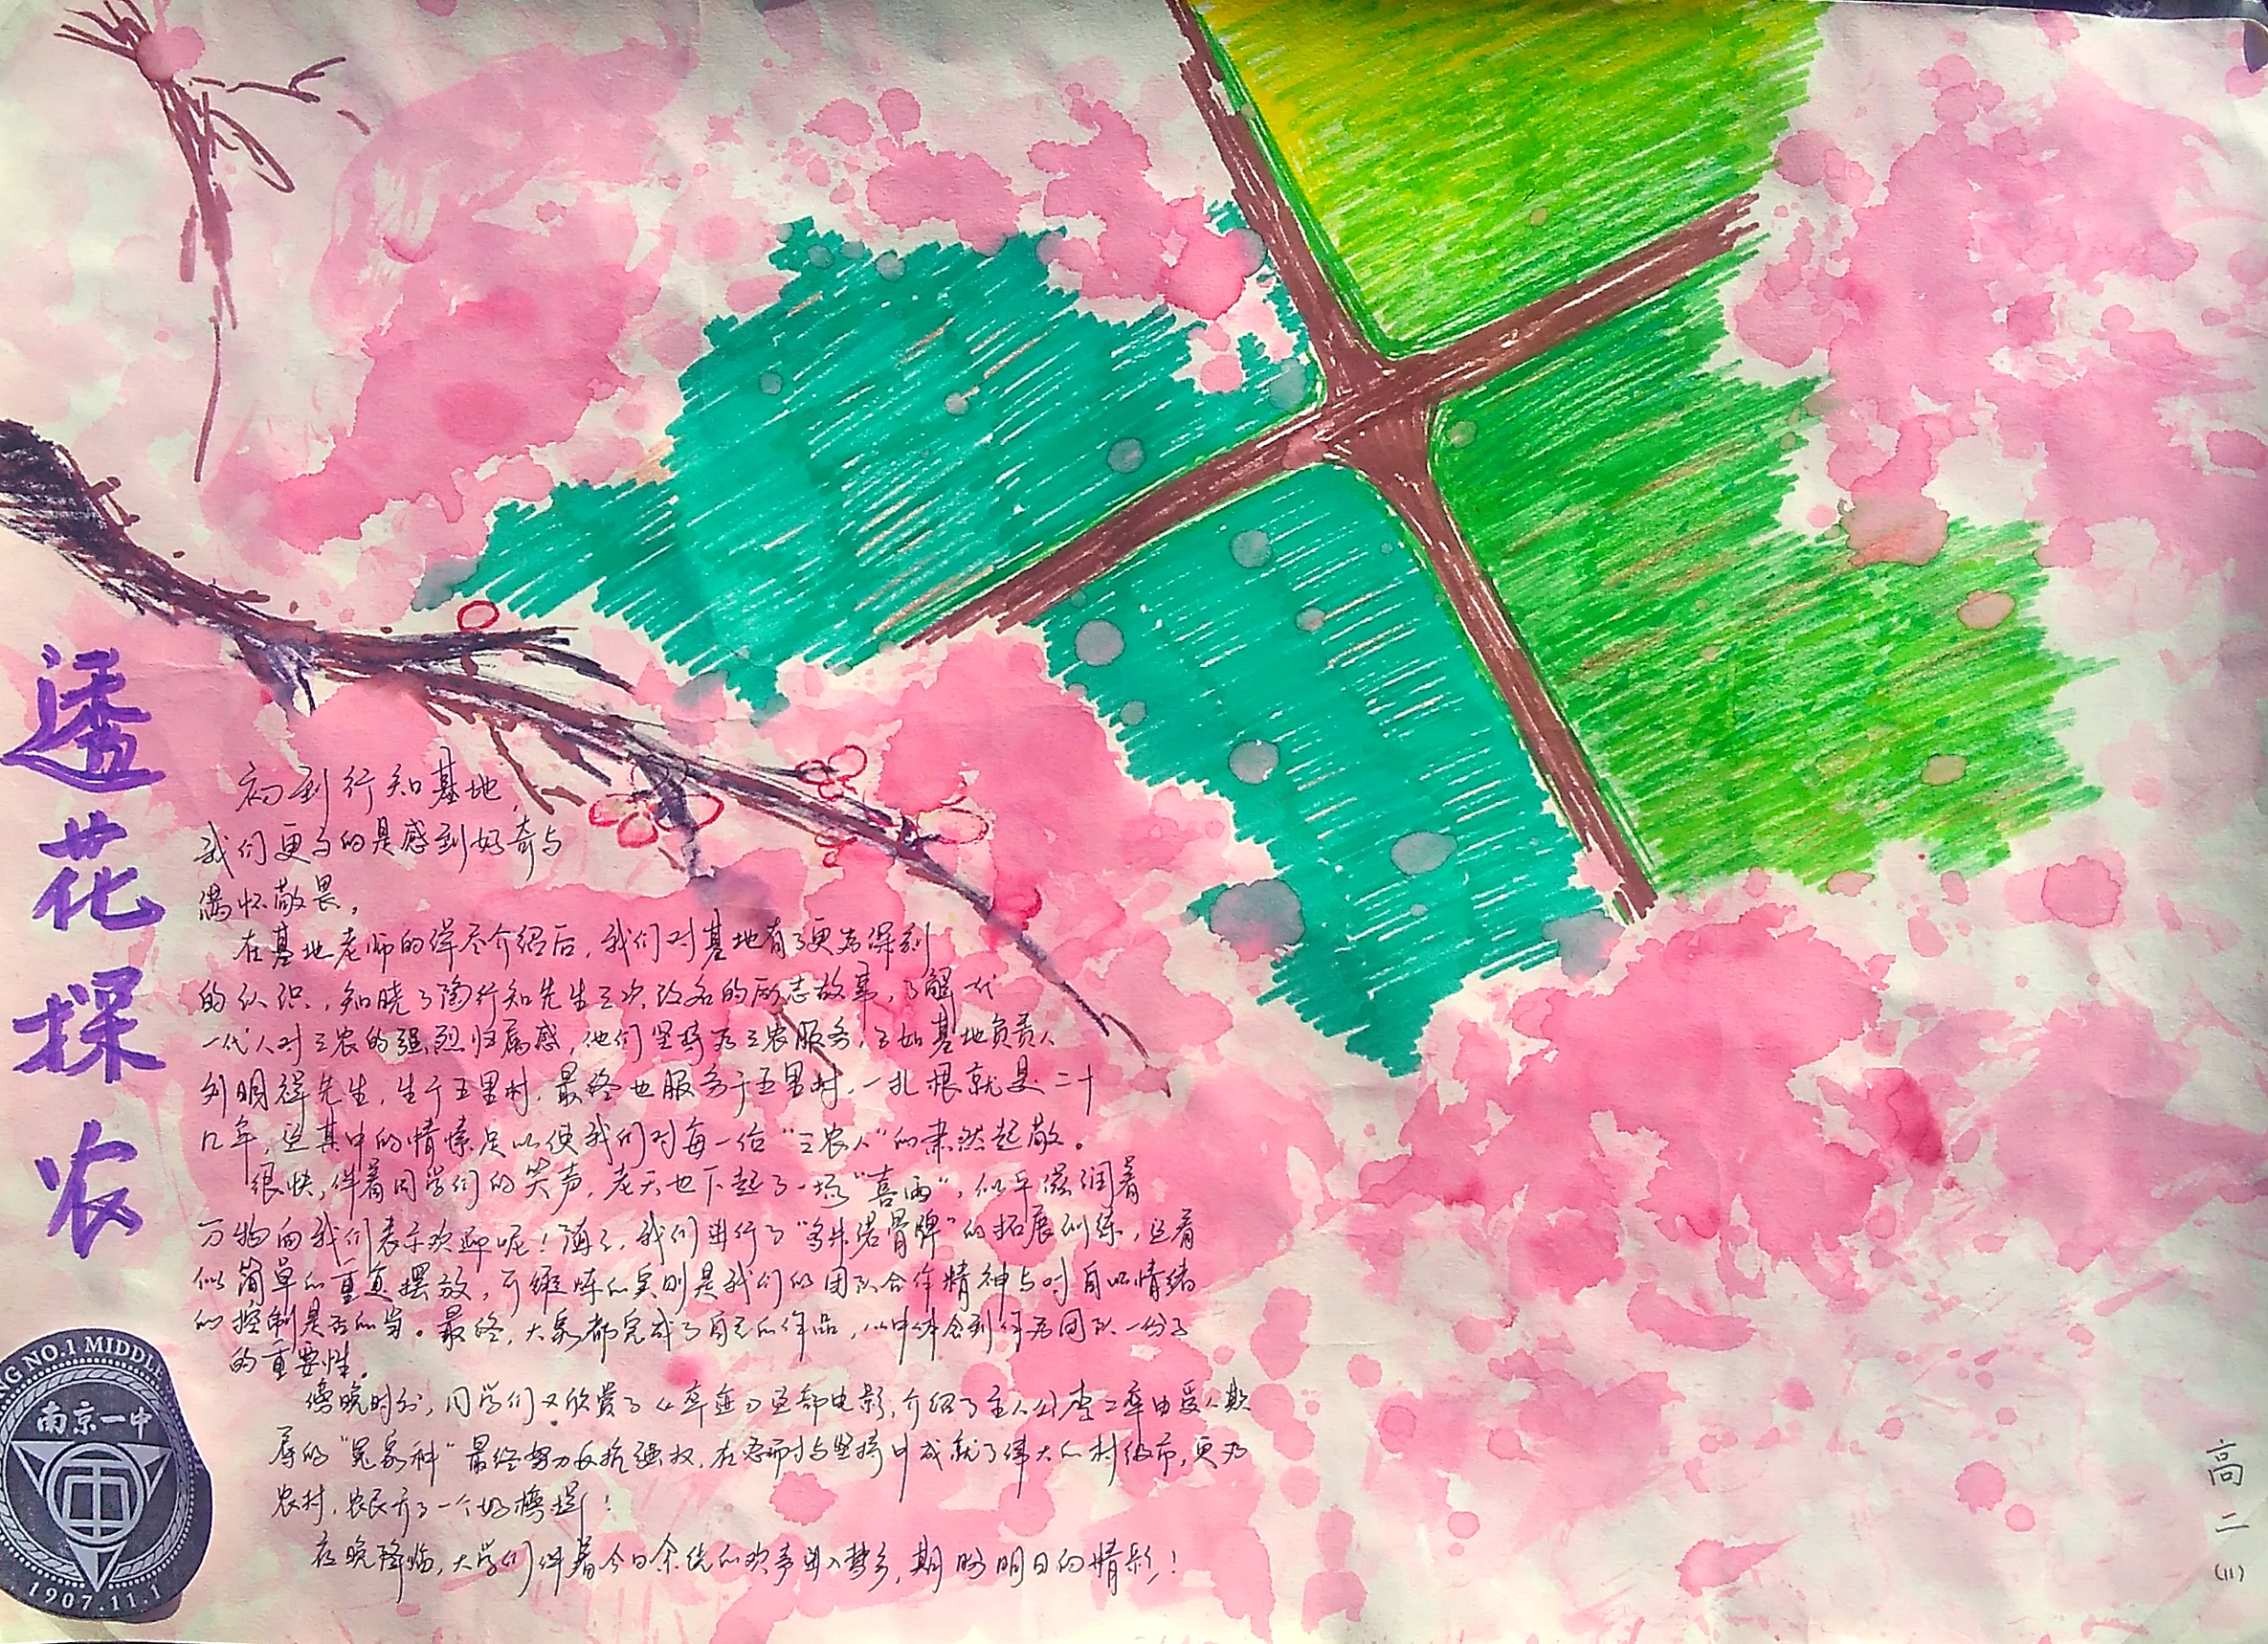 透花探农
初到行知基地,
我们更多的是感到好奇与
满怀敬畏。
在基地老师的详尽介绍后,我们对基地有了更为深刻
的认识,知晓了陶行知先生三次改名的励志故事,了解一代
一代人对三农的强烈归属感,他们坚持为三农服务,正如基地负责人
刘明祥先生,生于五里村,最终也服务于五里村,一扎根就是二十
几年,这其中的情愫足以使我们对每一位“三农人”的肃然起敬。
很快,伴着同学们的笑声,老天也下起了一场“喜雨”,似乎滋润着
万物向我们表示欢迎呢!随之,我们进行了“多米诺骨牌”的拓展训练,这看
似简单的重复摆放,可锻炼的实则是我们的团队合作精神与对自己情绪
的控制是否的当。最终,大家都完成了自己的作品,从中体会到作为团队一份子
的重要性。
傍晚时分,同学们又欣赏了《草莲》这部电影,介绍了主人公李二草由受人欺
辱的“冤家种”最终努力反抗强权,在忍耐与坚持中成就了伟大的村级市,更为
农村,农民开了一个好榜样!
夜晚降临,大学们伴着今日余绕的欢声进入梦乡,期盼明日的精彩!
NG NO.1 MIDDLE
南京一中
1907.11.1
高二
(11)